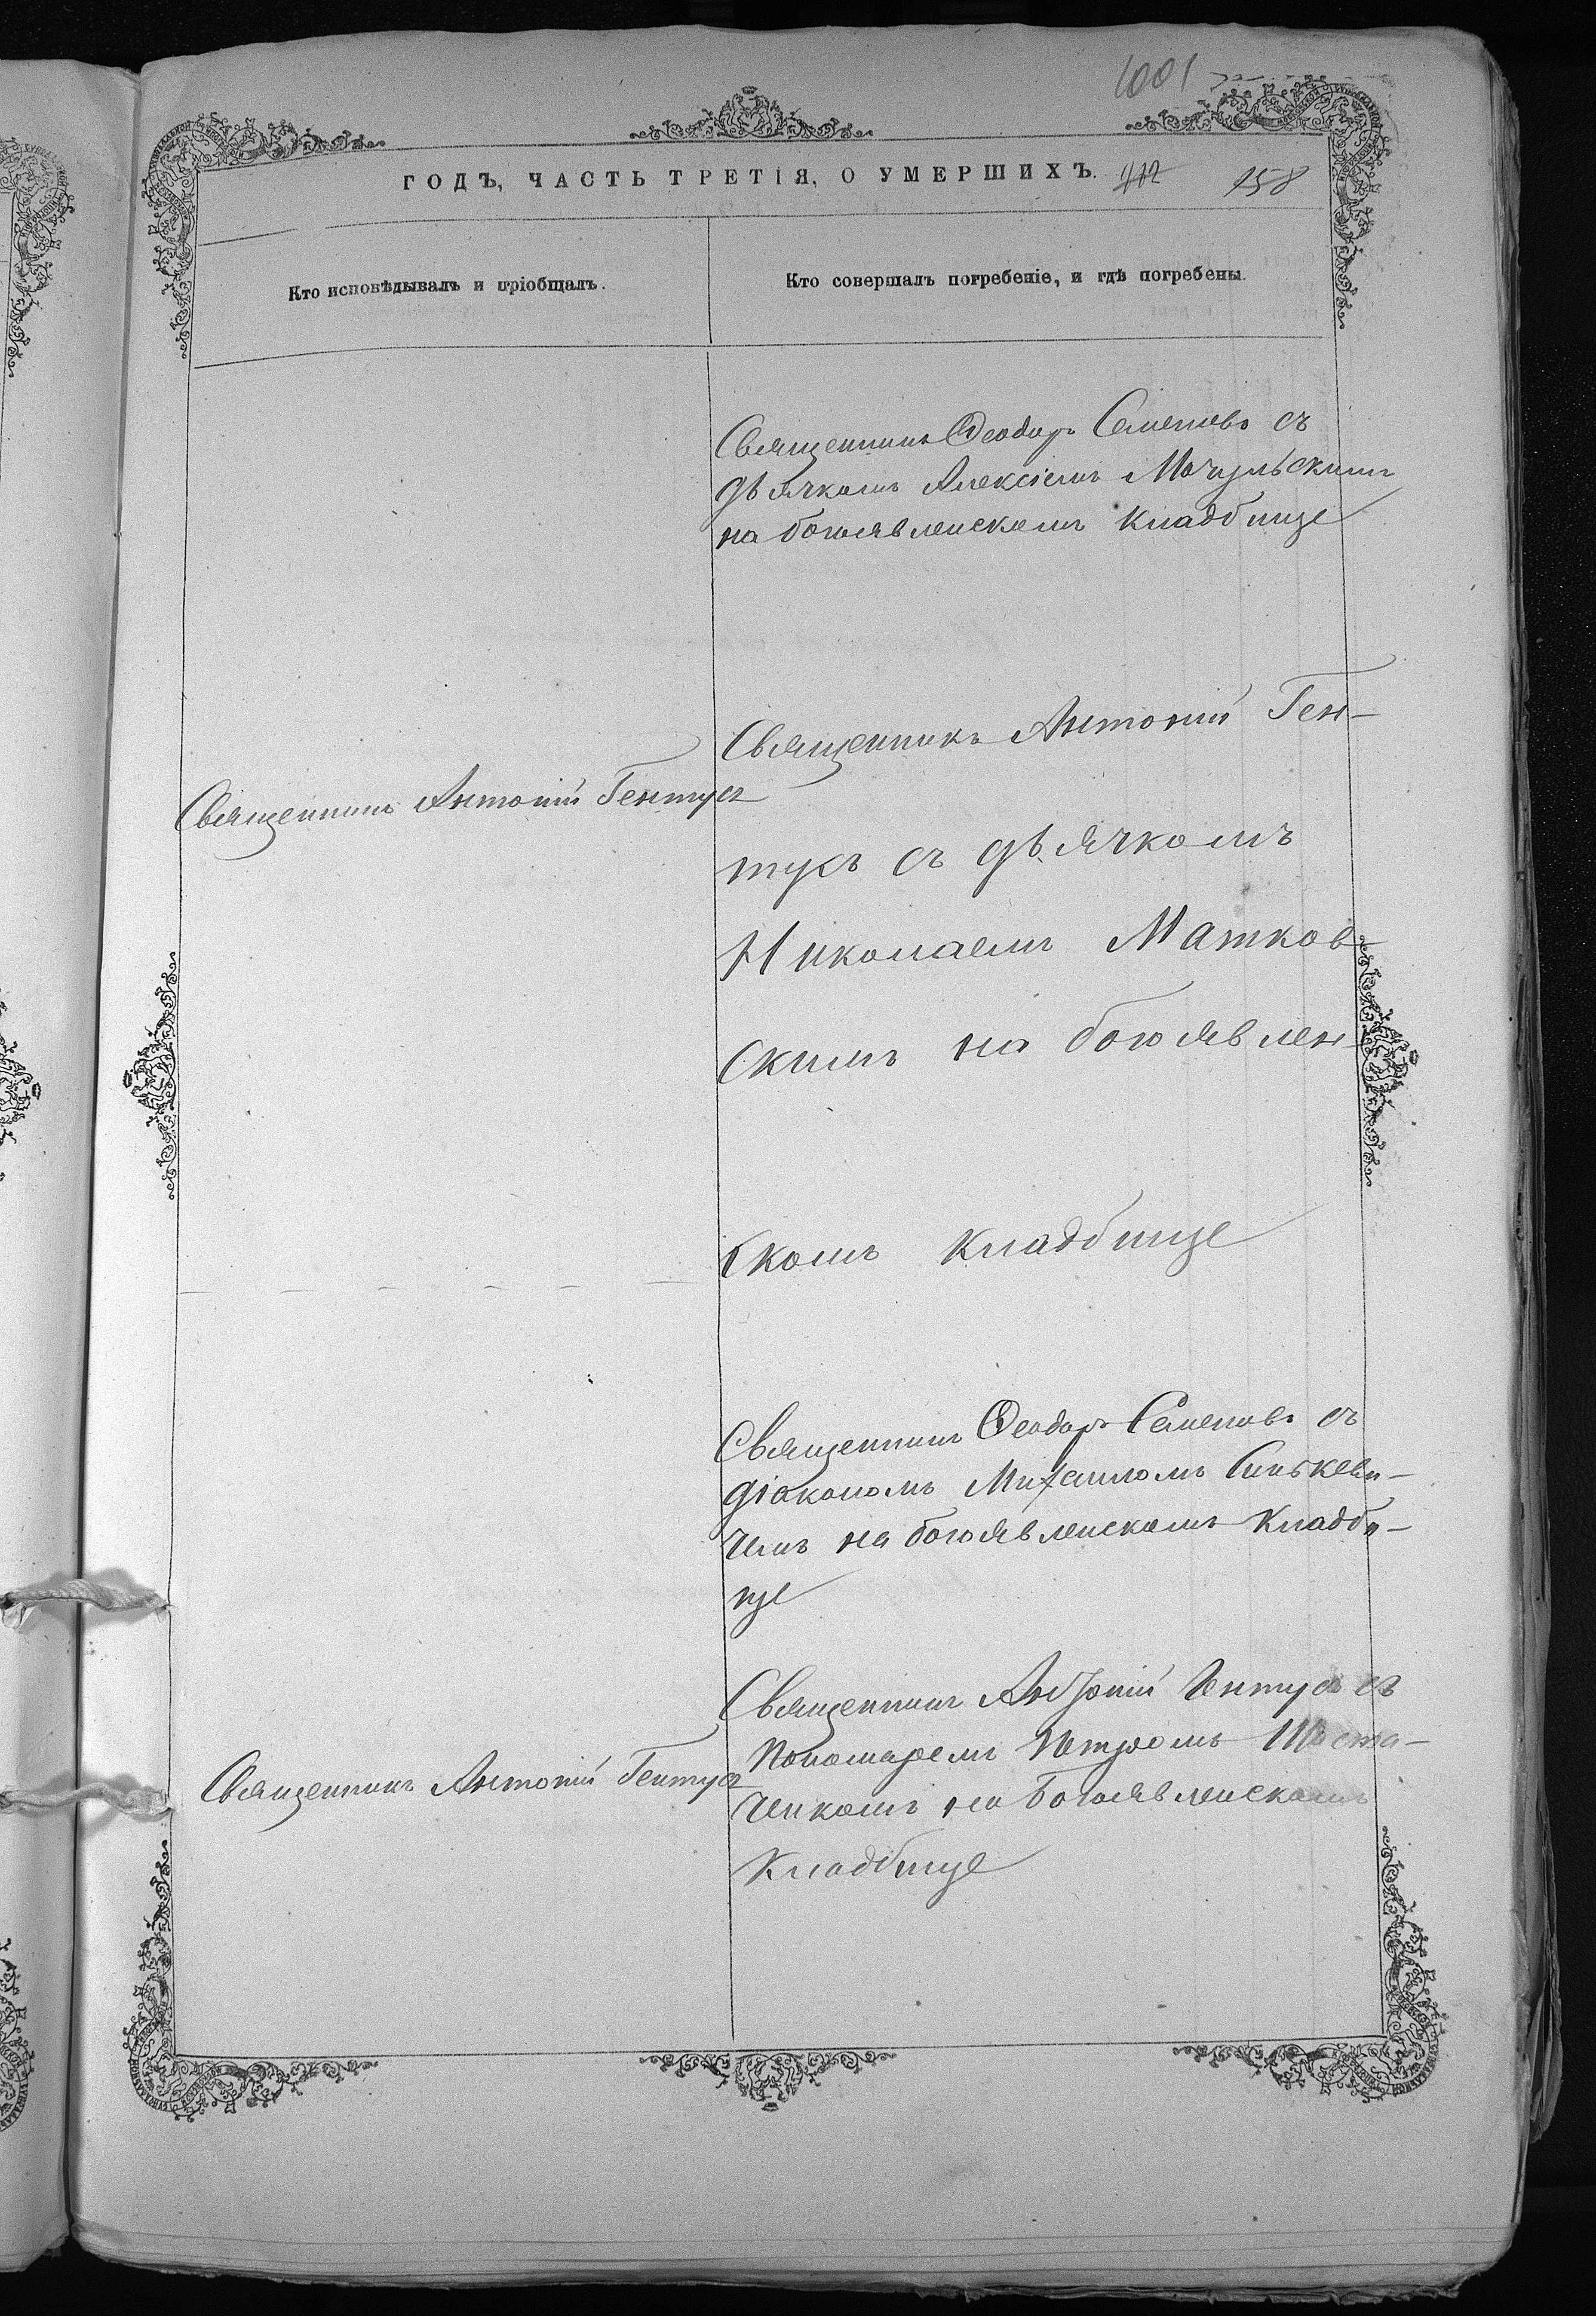 1001
ГОДЪ, ЧАСТЬ ТРЕТІЯ, О УМЕРШИХЪ.
158
Кто исповѣдывалъ и пріобщалъ.
Кто совершалъ погребеніе, и гдѣ погребены.
Священникъ Ѳеодоръ Семеновъ съ
дьячкомъ Алексіемъ Мочульскимъ
на богоявленскомъ кладбище
Священникъ Антоній Гентукъ
Священникъ Антоній Ген-
тукъ съ дьячкомъ
Николаемъ Матков-
скимъ на богоявлен-
скомъ кладбище
Священникъ Ѳеодоръ Семеновъ съ
діакономъ Михаиломъ Синькеви-
чемъ на богоявленскомъ кладби-
ще
Священникъ Антоній Гентукъ
Священникъ Антоній Гентукъ съ
Пономаремъ Петромъ Шеста-
ченкомъ на Богоявленскомъ
Кладбище